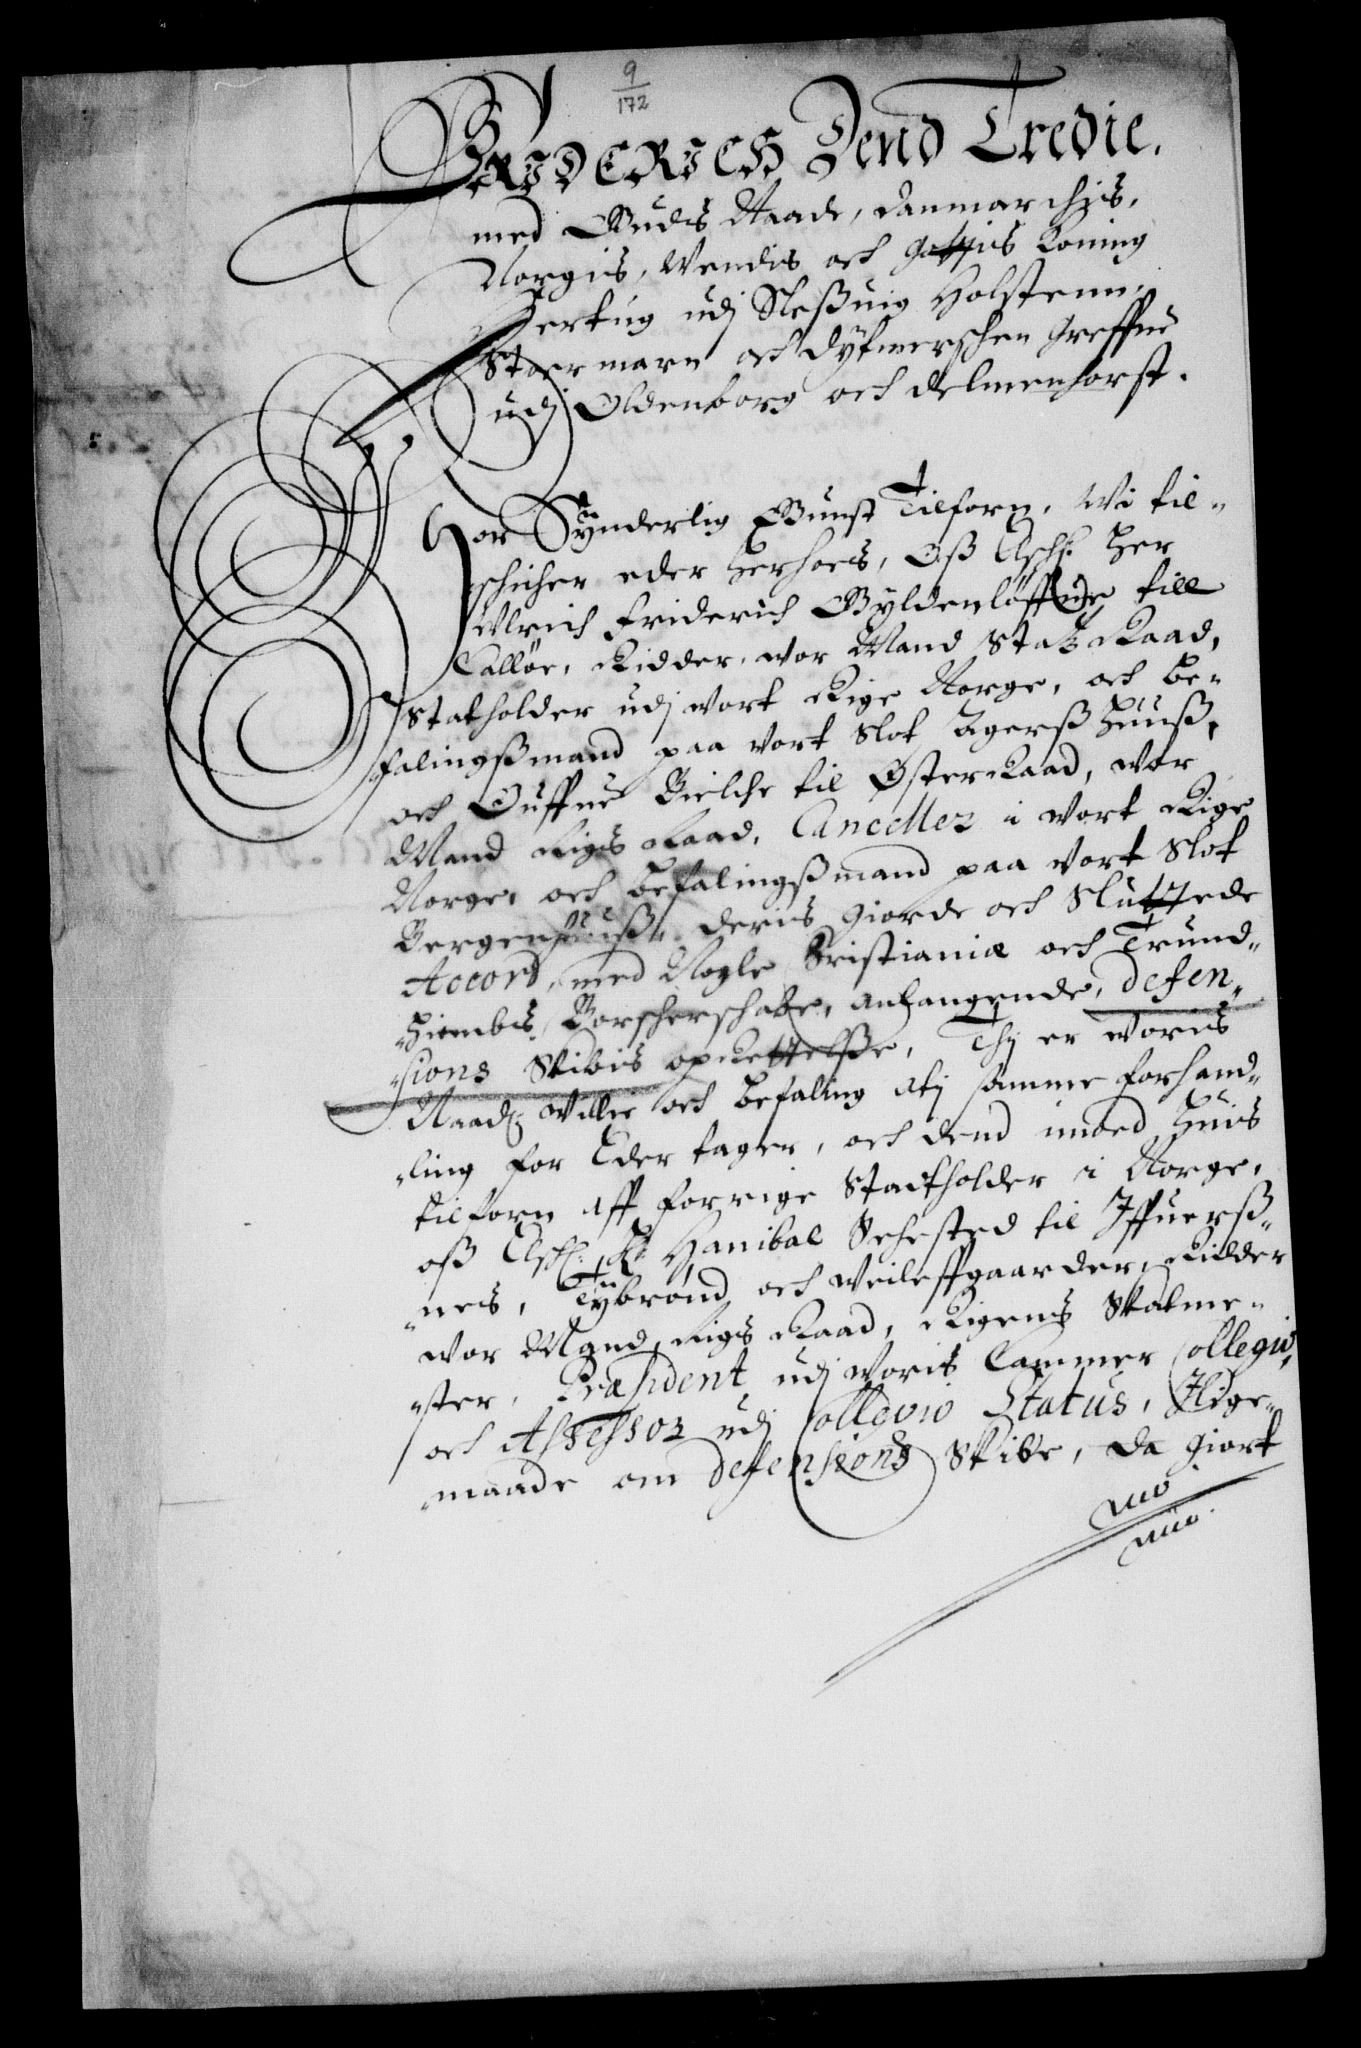 9
172
FRIDERICH Dend Tredie.
med Guds Naade, Danmarchis,
Norgis, Wendis och Gottis Koning
Hertug udj Sleßuig Holstenn,
Stormarn och Dytmerschen Greffue
udj Oldenborg och Delmenhorst.
Vor Synderlig Gunst Tilforn, Wi til-
schicher eder herhoes, Oß Elsch: Her
Ulrich Friderich Gyldenløffue till
Calløe, Ridder, vor Mand Statz Raad,
Statholder udj vort Rige Norge, och be-
falingßmand paa vort Slot Agerßhuuß,
och Ouffue Bielche til Østerraad, vor
Mand Rigs Raad, Canceller i vort Rige
Norge, och befalingßmand paa vort Slot
Bergenhuuß, deris giorde och Sluttede
Accord, med Nogle Cristianiæ och Trund-
hiembs Borscherschabe, anlangende, defen-
sions Skibis oprettelsse, Thj er voris
Naad: Villie och befaling atj samme forhand-
ling for Eder tager, och dend imod huis
tilforn aff forrige Stadtholder i Norge,
oß Elsch: Hr Hanibal Sehested til Iffuerß-
nes, Tybrønd och Weileffgaarder, Ridder
vor Mand, Rigs Raad, Rigens Skatme-
ster, Præsident udj Voris Cammer Collegio,
och Assessor udj Collegio Status, Lige-
maade om defensions Skibe, da giort